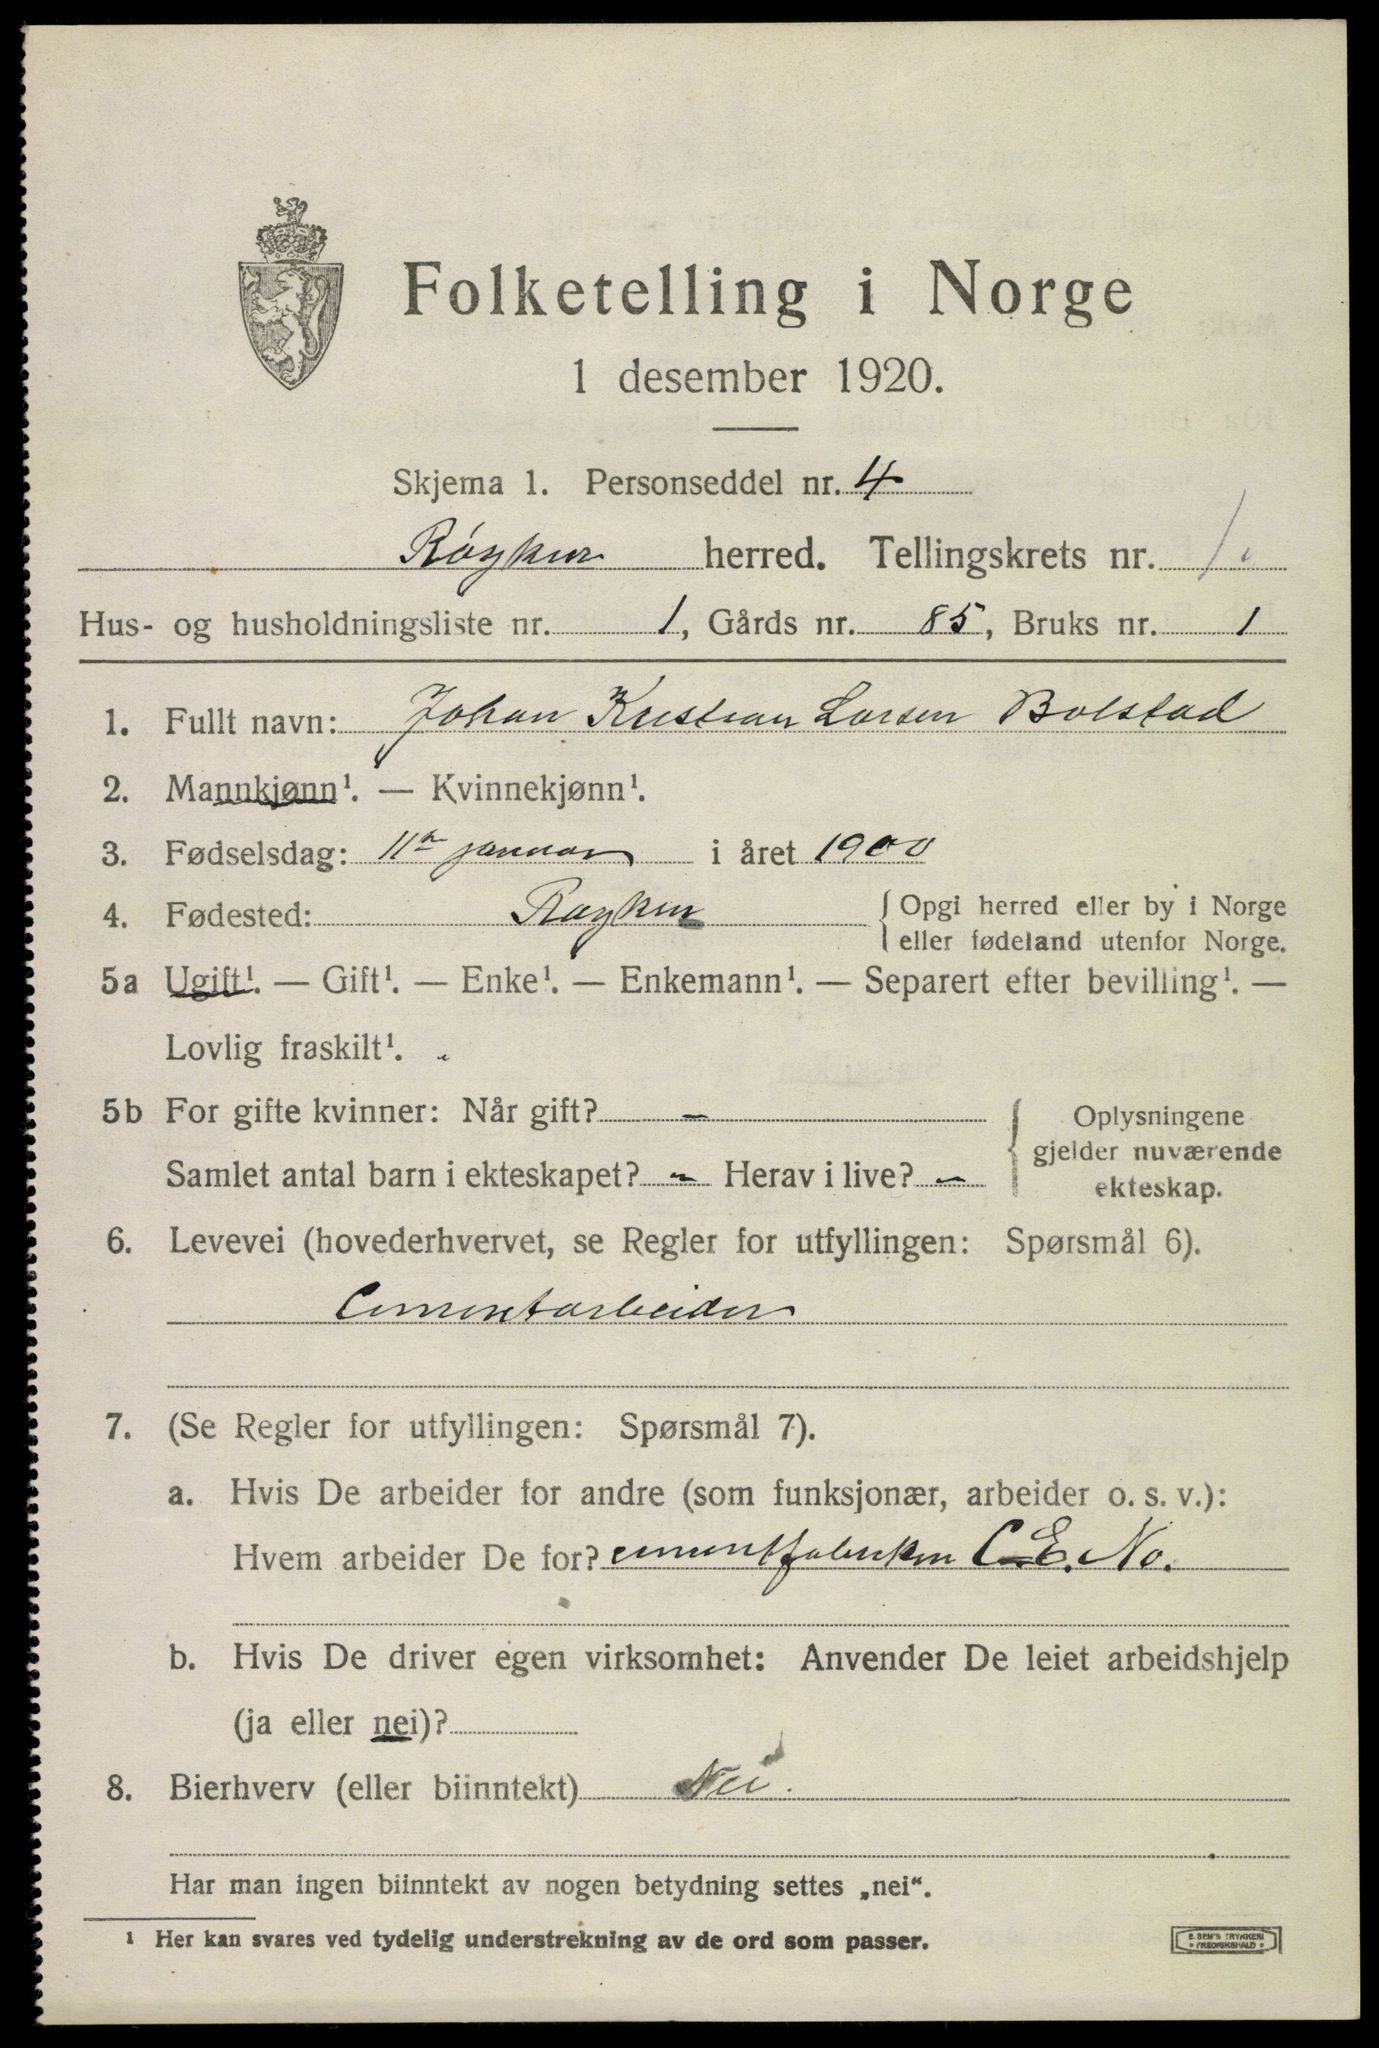 Folketelling i Norge
1 desember 1920.
Skjema 1. Personseddel nr. 4
Røyken herred. Tellingskrets nr. 1
Hus- og husholdningsliste nr. 1, Gårds nr. 85, Bruks nr. 1
1. Fullt navn: Johan Kristian Larsen Bolstad
2. Mannkjønn¹. — Kvinnekjønn¹.
3. Fødselsdag: 11te januar i året 1900
4. Fødested: Røyken { Opgi herred eller by i Norge
eller fødeland utenfor Norge.
5a Ugift¹. — Gift¹. — Enke¹. — Enkemann¹. — Separert efter bevilling¹. —
Lovlig fraskilt¹.
5b For gifte kvinner: Når gift? –
Samlet antal barn i ekteskapet? – Herav i live? –
{ Oplysningene
gjelder nuværende
ekteskap.
6. Levevei (hovederhvervet, se Regler for utfyllingen: Spørsmål 6).
Cementarbeider
7. (Se Regler for utfyllingen: Spørsmål 7).
a. Hvis De arbeider for andre (som funksjonær, arbeider o. s. v.):
Hvem arbeider De for? cementfabriken C.E. No.
b. Hvis De driver egen virksomhet: Anvender De leiet arbeidshjelp
(ja eller nei)?
8. Bierhverv (eller biinntekt) Nei.
Har man ingen biinntekt av nogen betydning settes „nei“.
¹ Her kan svares ved tydelig understrekning av de ord som passer.
E. SEM'S TRYKKERI
FREDRIKSHALD